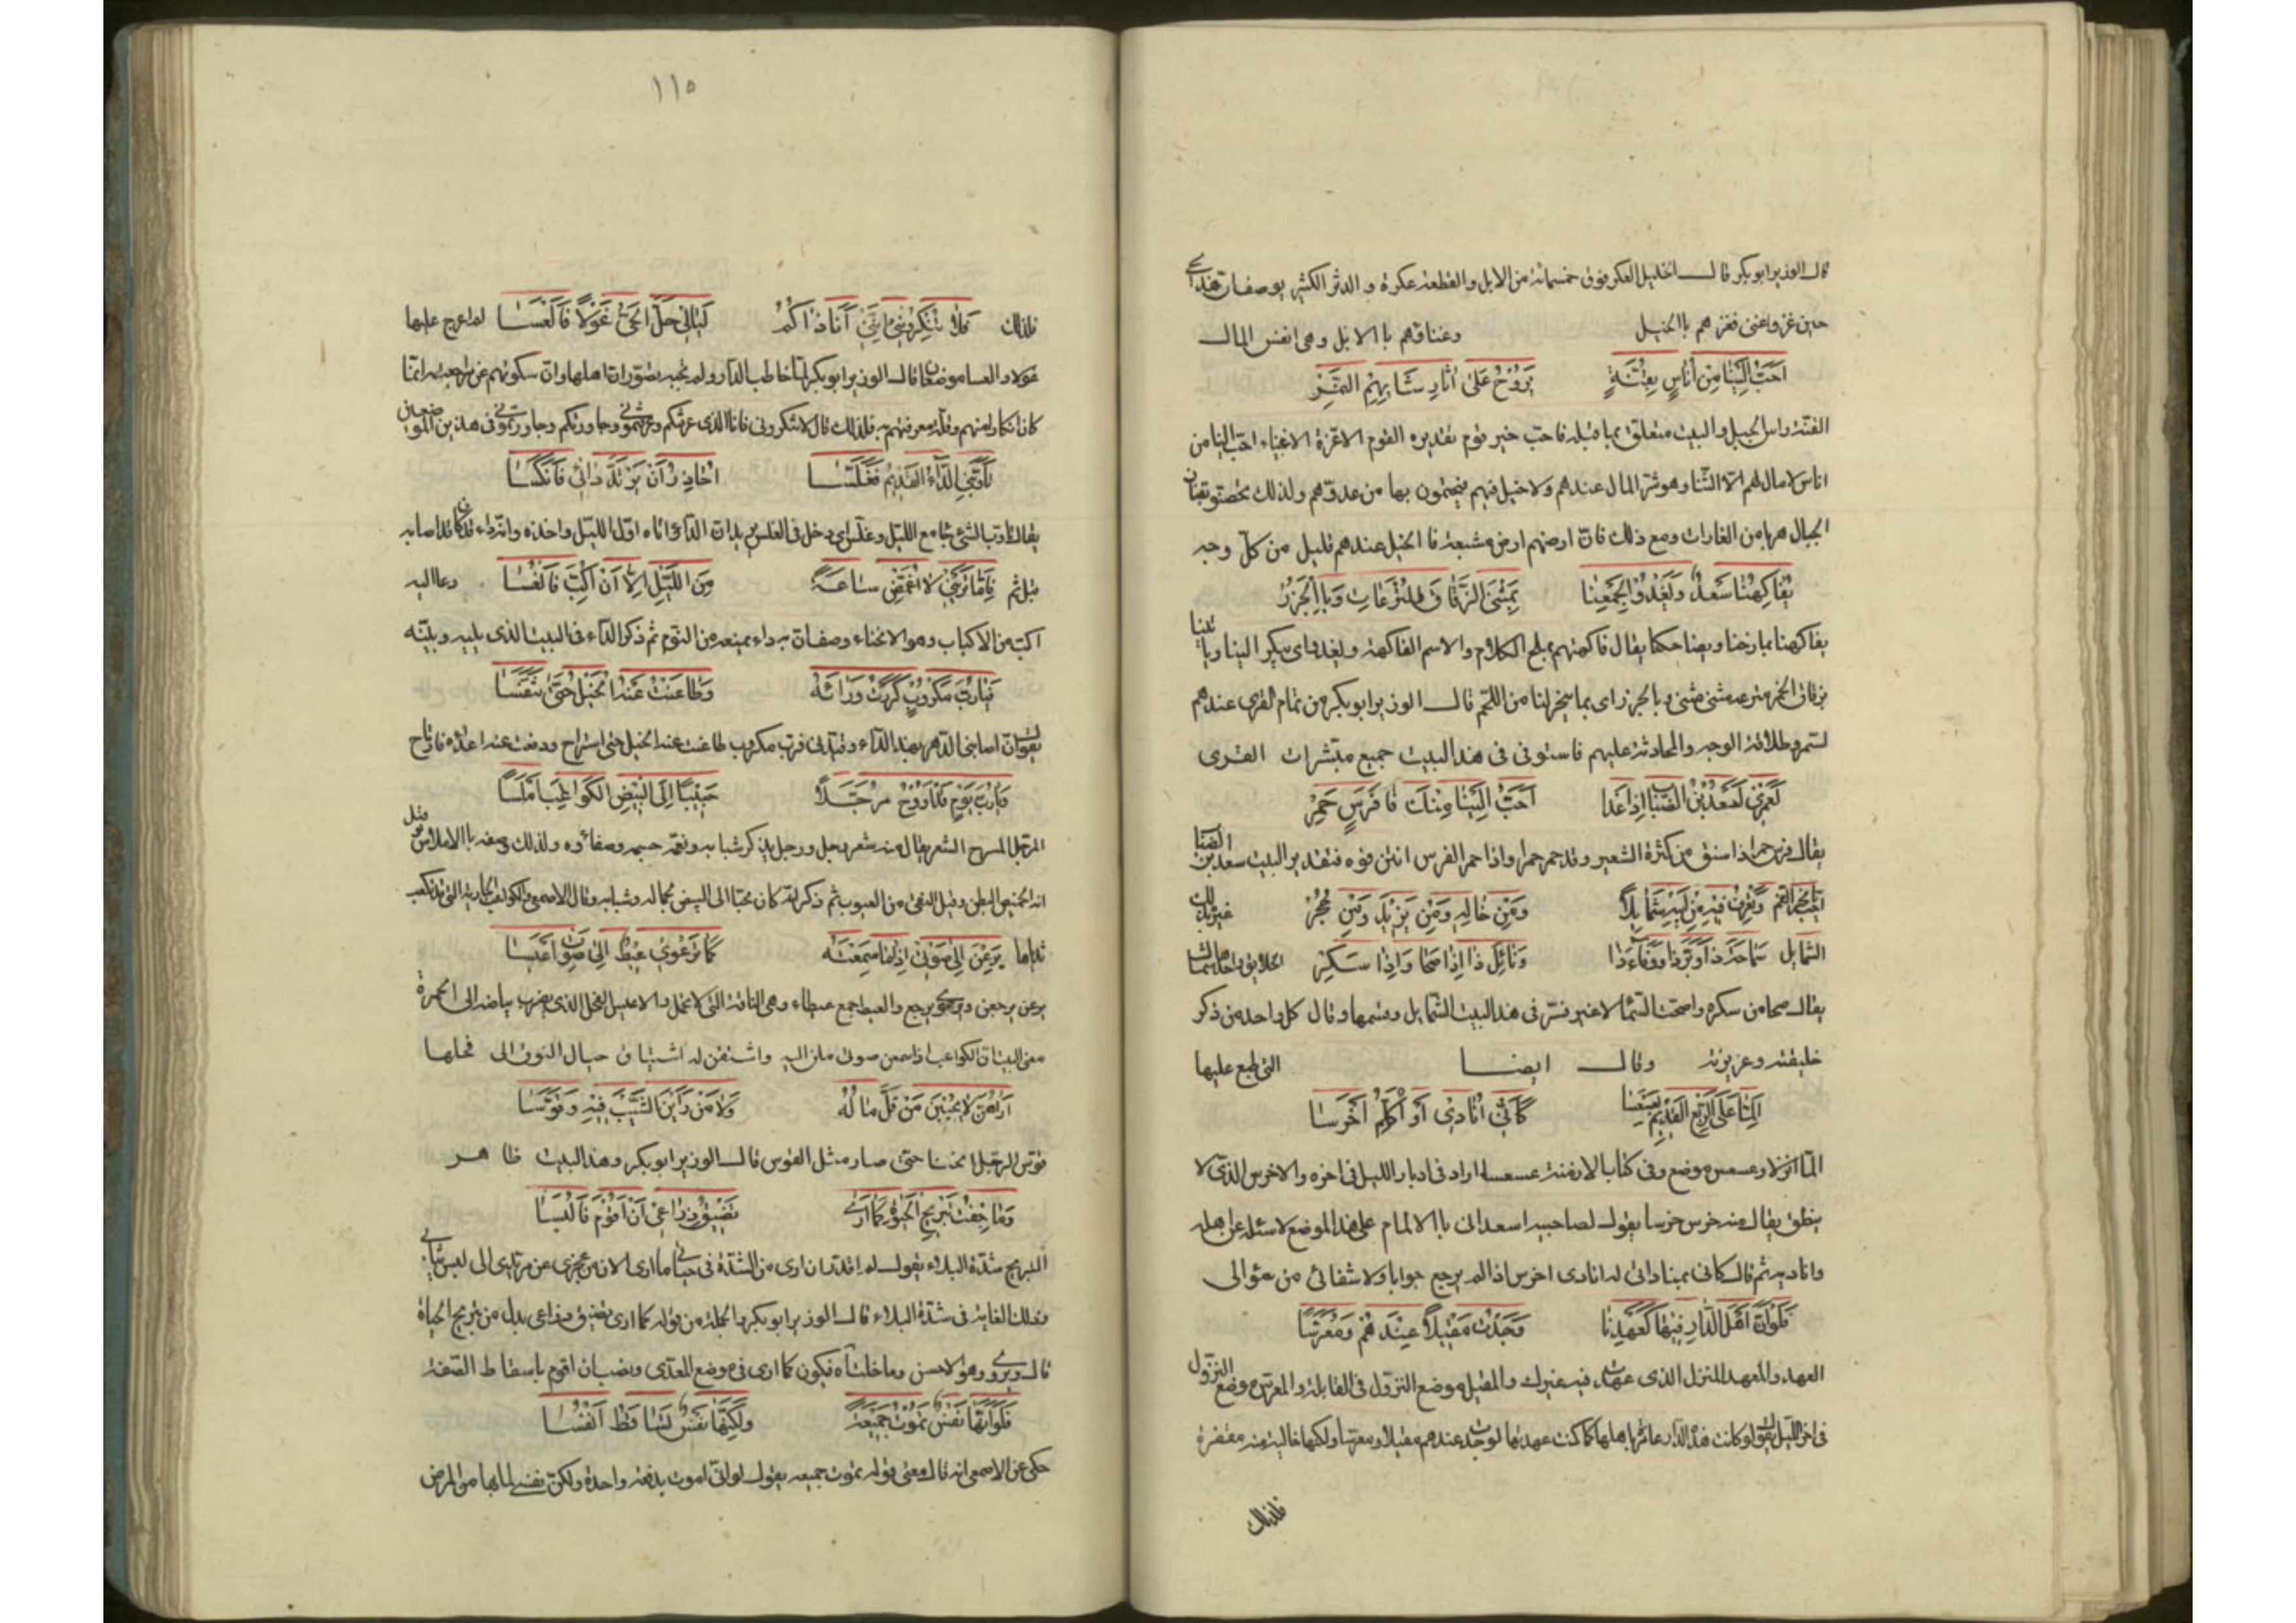 قال الوزير ابوبكر قال الخليل العكر فوق خمسمائة من الابل والقطعة عكرة و الدثر الكثير يوصفان هذا
حين غزو اعنى فغزهم باالخيل وعناقهم باالابل وهى انفس المال
احَبُّ اِلَيْنَا مِن اُنَاسٍ بِقُنَّةٍ يَرُوحُ عَلىٰ اٰثَارِ شَائِهِم النَّمِرْ
القنّة راس الجبل والبيت متعلق بما قبله فاحب خبر قوم تقديره القوم الاعزة الاغنياء احبّ الينا من
اناس لا مال لهم الّا الشاء وهو شر المال عندهم ولا خيل فيهم فيحتمون بها من عدوّهم ولذلك تحصنو بقنان
الجبال هربا من الغارات ومع ذلك فانّ ارضهم ارض مشبعة فا الخيل عندهم قليل من كلّ وجه
يُفَاكِهُنَا سَعدٌ وَيَغْدُو لِجَمْعِنَا بِمَثْنَى الزِّقَاقِ المُتْرَعَاتِ وَبِاالْجُزُرْ
يفاكهنا يمازحنا ويضاحكنا يقال فاكهتهم بملح الكلام والاسم الفاكهة ويغدو اى يبكر الينا وياتينا
بزقاق الخمر مترعة مثنى مثنى وبالجزر اى بما ينحر لنا من اللحم قال الوزير ابوبكر من تمام القرى عندهم
لستمر وطلاقة الوجه والمحادثة عليهم فاستوفى فى هذا البيت جميع مبشرات القرى
لَعَمْرِى لَسَعْدُ بْنُ الضِّبَابِ اِذَا غَدَا اَحَبُّ اِلَيْنَا مِنْكَ فَا فَرَسٍ حَمِرْ
يقال فرس حمر اذا سنق من كثرة الشعير وقد حمر حمرا واذا حمر الفرس انتن فوه فتقدير البيت سعد بن الضبا
احب وَتَعْرِفُ فِيهِ مِنْ اَبِيهِ شَمَائِلًا وَمِن خَالِهِ وَمِن يَزِيدَ وَمِن حُجُرْ
الشمايل سَمَاحَةَ ذَا وَبِرَّ ذَا وَوَفَاءَ ذَا وَنَائِلَ ذَا اِذَا صَحَا وَاِذَا سَكِرْ الخلايق واحدها شمال
يقال صحا من سكره واصحت السّما لا غير فسّر فى هذا البيت الشمايل وقسمها وقال كل واحد من ذكر
خليقته وعزيزته وقال ايضا التى طبع عليها
اَلِمَّا عَلَى الرَّبْعِ القَدِيمِ بِعَسْعَسَا كَاَنِّى اُنَادِى اَوْ اُكَلِّمُ اَخْرَسَا
المّا انزلا وعسعس موضع وفى كتاب الازمنة عسعسا اراد فى ادبار الليل فى اخره والاخرس الذى لا
ينطق يقال منه خرس خرسا يقول لصاحبيه اسعدانى باالالمام على هذا الموضع لاسئله عن اهله
واناديه ثم قال كانى بمناداتى له انادى اخرس اذ لم يرجع جوابا ولا شفانى من سؤالى
فَلَوْ اَنَّ اَهْلَ الدَّارِ فِيهَا كَعَهْدِنَا وَجَدْتُ مَقِيلًا عِنْدَهُمْ وَمُعَرَّسَا
العهد والمعهد المنزل الذى عهدت فيه غيرك والمقيل موضع النزول فى القايلة والمعرّس موضع النزول
فى اخر الليل يقول لو كانت هذه الدّار عامرة باهلها كما كنت عهدتها لوجدت عندهم مقيلا ومعرسا ولكنها خالية منهم مقفرة
فلذلك
١١٥
فلذلك فَلَا تُنْكِرُونِى اِنَّنِى اَنَا ذَاكُمُ لَيَالِىَ حَلَّ الحَىُّ غَوْلًا فَاَلْعَسَا لما عرج عليها
غولا والعسا موضعان قال الوزير ابوبكر لمّا خاطب الدّار ولم تجبه تصوّر انّ اهلها وانّ سكوتهم عن مراجعته انّما
كان انكارا منهم وقلّة معرفتهم به فلذلك قال لا تنكرونى فانا الذى عرفتكم وعرفتمونى وجاورتكم وجاورتمونى فى هذين الموضعين
تَأَوَّبَنِى الدَّاءُ القَدِيمُ فَغَلَّسَا اُحَاذِرُ اَنْ يَرْتَدَّ دَائِى فَاُنْكَسَا
يقال تاوّب الشئ جا مع الليل وغلّس اى دخل فى الغلس يريد ان الدّاء اتاه اوّل الليل واخذه وانه داء قد كان قد اصابه
قبل ثم فَاِمَّا تَرَيْنِى لَا اُغَمِّضُ سَاعَةً مِنَ اللَّيْلِ اِلَّا اَنْ اُكِبَّ فَاَنْعُسَا دعا اليه
اكبّ من الاكباب وهو الانحناء وصف انّ به داء يمنعه من النوم ثم ذكر الدّاء فى البيت الذى يليه وبيّنه
فَيَارُبَّ مَكْرُوبٍ كَرَرْتُ وَرَاءَهُ وَطَاعَنْتُ عَنْهُ الخَيْلَ حَتّٰى تَنَفَّسَا
يقول ان اصابنى الدّهر بهذا الدّاء وقيّدنى فربّ مكروب طاعنت عنه الخيل حتى استراح ودفعت عنه اعداه فارتاح
فَيَارُبَّ يَوْمٍ قَدْ اَرُوحُ مُرَجَّلًا حَبِيبًا اِلَى البِيضِ الكَوَاعِبِ اَمْلَسَا
المرجّل المسرح الشعر يقال منه شعر رجل ورجل يذكر شبابه ونعمة جسمه وصفاءه ولذلك وصفه باالاملاس قيل
انه الخميص البطن وقيل النقى من العيوب ثم ذكر انّه كان محبّا الى البيض لجماله وشبابه وقال الاصمعى والكواعب الجارية التى قد كعب
ثديها يَرِعْنَ اِلَى صَوْتِى اِذَا مَا سَمِعْنَهُ كَمَا تَرْعَوِى عِيطٌ اِلَى صَوْتِ اَعْيَسَا
يرعن يرجعن وترعوى يرجع والعيط جمع عيطاء وهى الناقة التى لا تحمل والاعيس الفحل الذى يضرب بياضه الى الحمرة
معنى البيت انّ الكواعب اذا سمعن صوتى ملن اليه واشتقن له اشتياق حيال النوق الى فحلها
اَرَاهُنَّ لَا يُحْبِبْنَ مَنْ قَلَّ مَالُهُ وَلَا مَنْ رَاَيْنَ الشَّيْبَ فِيهِ وَقَوَّسَا
قوّس الرجل انحنا حتىّ صار مثل القوس قال الوزير ابوبكر وهذا البيت ظاهر
وَمَا خِفْتُ تَبْرِيحَ الحَيٰوةِ كَمَا اَرَى تَضِيقُ ذِرَاعِى اَنْ اَقُومَ فَاَلْبَسَا
التبريح شدّة البلاء يقول لم اقدر ان ارى من الشدّة فى حياتى ما ارى الان من عجزى عن مرقدى الى لبس ثيابى
وتلك الغاية فى شدّة البلاء قال الوزير ابوبكر والجملة من قوله كما ارى تضيق ذراعى بدل من تبريح الحياة
قال ويروى وهو الاحسن وما خلت اه فيكون كما ارى فى موضع المعدّى ونصب ان اقوم باسقاط الصّفة
فَلَوْ اَنَّهَا نَفْسٌ تَمُوتُ جَمِيعَةً وَلٰكِنَّهَا نَفْسٌ تَسَاقَطُ اَنْفُسَا
حكى عن الاصمعى انه قال معنى قوله تموت جميعه يقول لو انّى اموت بدفعة واحدة ولكن نفسى لما بها من المرض